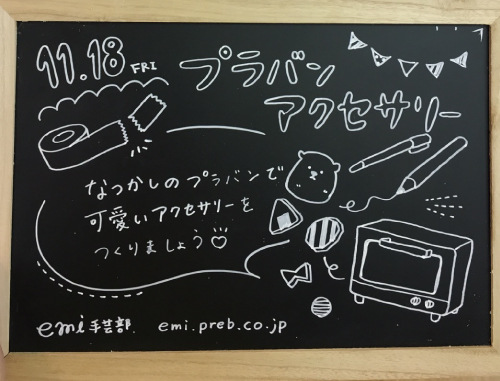 11.18 FRI
プラバン
アクセサリー
なつかしのプラバンで
可愛いアクセサリーを
つくりましょう♡
emi手芸部 emi.preb.co.jp